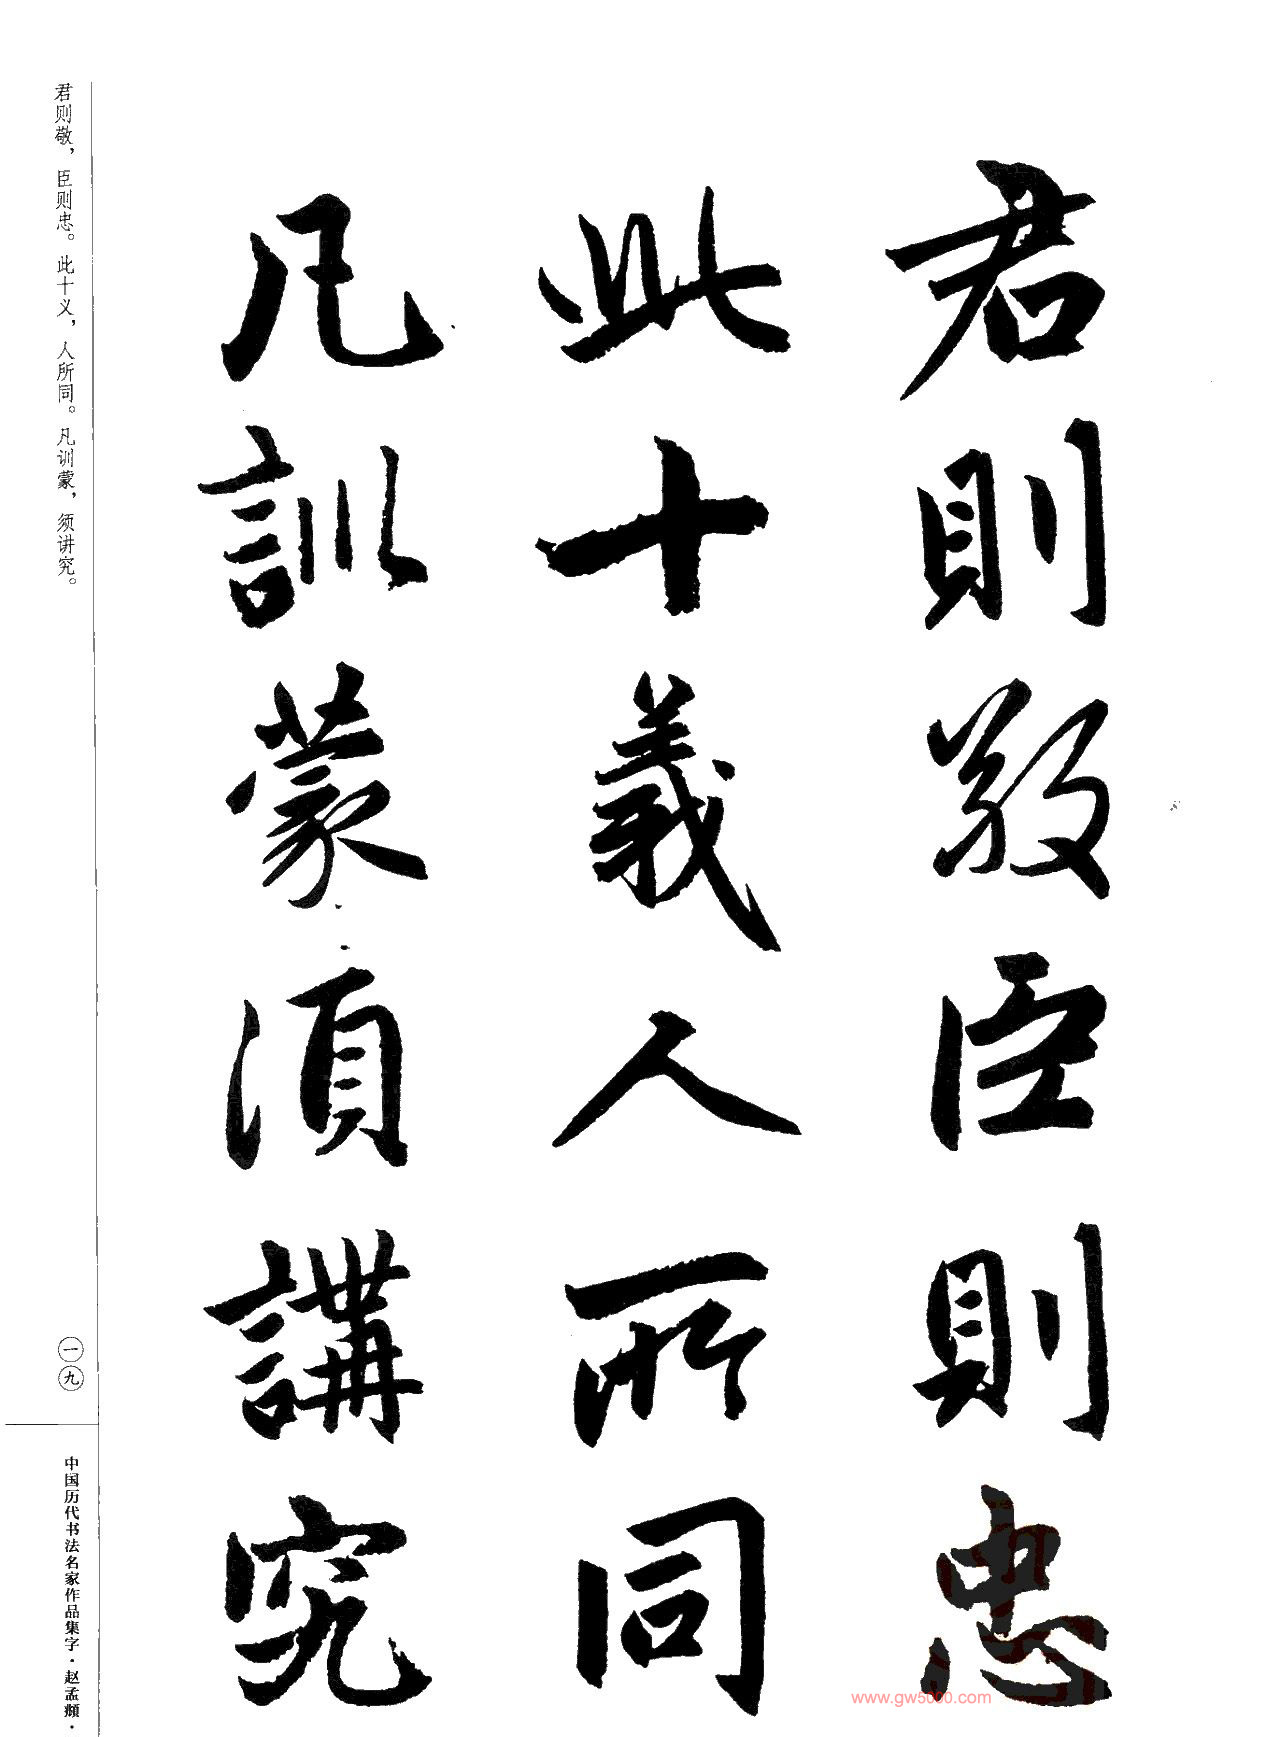 君則敬臣則忠
此十義人所同
凡訓蒙須講究
君则敬，臣则忠。此十义，人所同。凡训蒙，须讲究。
一九
中国历代书法名家作品集字·赵孟頫·
www.gw5000.com